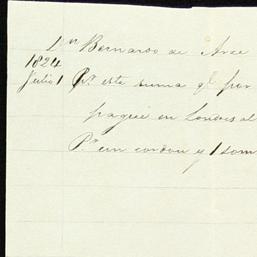 Dn Bernardo de Arce
1824
Julio 1 Pr. esta suma qe. por
pagué en Londres al
Pr. un cordon y 1 som